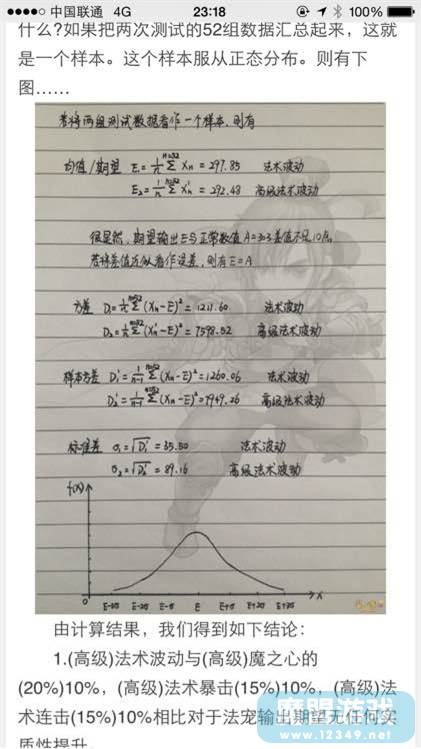 中国联通 4G 23:18 100%
什么?如果把两次测试的52组数据汇总起来，这就
是一个样本。这个样本服从正态分布。则有下
图……
若将两组测试数据看作一个样本，则有
均值/期望 E₁=1/n Σ Xn = 297.85 法术波动
E₂=1/n Σ Xn' = 292.48 高级法术波动
很显然，期望输出E与正常数值A=303差值不足10点。
若将差值近似看作误差，则有E=A
方差 D₁=1/n Σ(Xn-E)²=1211.60 法术波动
D₂=1/n Σ(Xn'-E)²=7598.52 高级法术波动
样本方差 D₁'=1/n-1 Σ(Xn-E)²=1260.06 法术波动
D₂'=1/n-1 Σ(Xn'-E)²=7949.26 高级法术波动
标准差 σ₁=√D₁'=35.50 法术波动
σ₂=√D₂'=89.16 高级法术波动
f(x)
0 E-3σ E-2σ E-σ E E+σ E+2σ E+3σ x
由计算结果，我们得到如下结论：
1.(高级)法术波动与(高级)魔之心的
(20%)10%，(高级)法术暴击(15%)10%，(高级)法
术连击(15%)10%相比对于法宠输出期望无任何实
质性提升。
摩盟游戏
www.12349.net